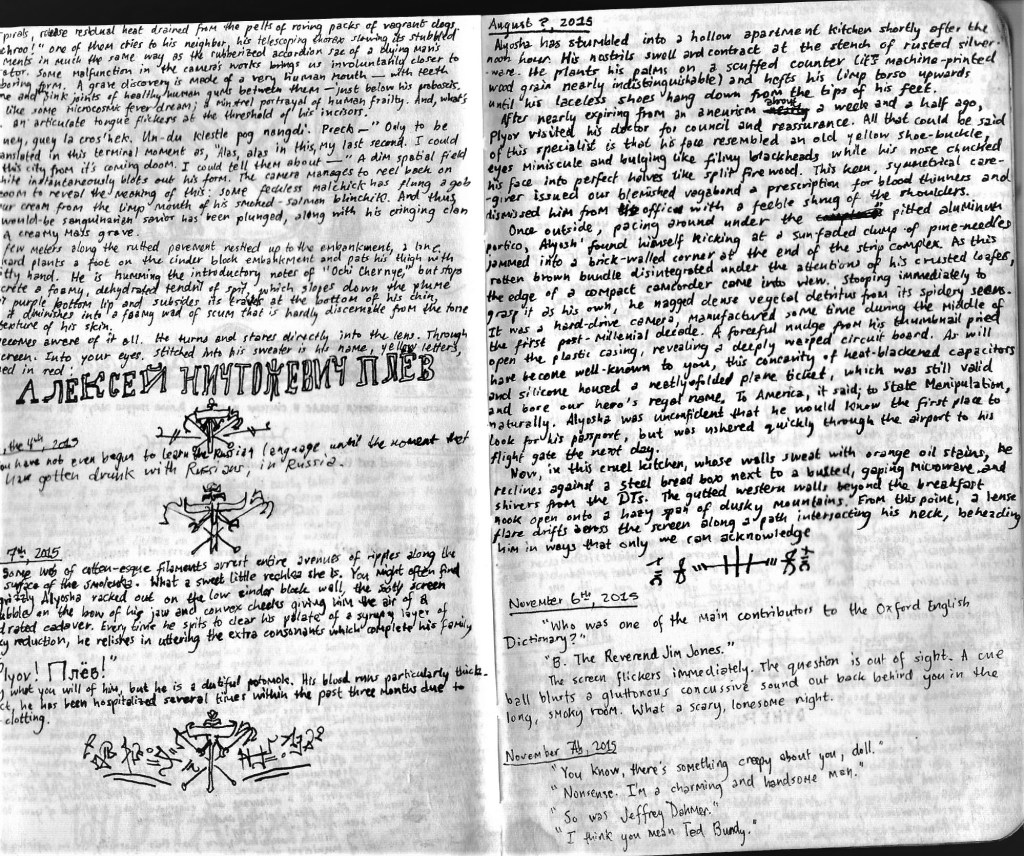 pirals, residual heat drained from the pelts of roving packs of vagrant dogs.
one of them cries to his neighbor, his telescoping thorax slowing its stubbled
ments in much the same way as the rubberized accordion sac of a dying man's
ator. Some malfunction in the camera's works brings us involuntarily closer to
boring form. A grave discovery is made of a very human mouth — with teeth
me and pink joints of healthy human gums between them — just below his proboscis.
like some microcosmic fever dream; a minstrel portrayal of human frailty. And, what's
an articulate tongue flickers at the threshold of his incisors.
ney, guey la cros'hek. Un-du klestle pog nangdi. Preck —" Only to be
anslated in this terminal moment as, "Alas, alas in this, my last second. I could
this city from it's coming doom. I could tell them about —" A dim spatial field
white instantaneously blots out his form. The camera manages to reel back on
zoom to reveal the meaning of this: some feckless malchick has flung a gob
our cream from the limp mouth of his smoked-salmon blinchik. And thus,
would-be sanguinarian savior has been plunged, along with his cringing clan
a creamy mass grave.
few meters along the rutted pavement nestled up to the embankment, a
plants a foot on the cinder block embankment and pats his thigh with
hand. He is humming the introductory notes of "Ochi Chernye," but stops
crete a foamy, dehydrated tendril of spit, which slopes down the plume
purple bottom lip and subsides its travels at the bottom of his chin,
it diminishes into a foamy wad of scum that is hardly discernable from the tone
texture of his skin.
ecomes aware of it all. He turns and stares directly into the lens. Through
screen. Into your eyes. Stitched into his sweater is his name, yellow letters,
ed in red:
АЛЕКСЕЙ НИЧТОЖЕВИЧ ПЛЁВ
, the 4th, 2015
ou have not even begun to learn the Russian language until the moment that
have gotten drunk with Russians, in Russia.
7th, 2015
Some web of cotton-esque filaments arrest entire avenues of ripples along the
surface of the Smolenka. What a sweet little rechka she is. You might often find
grizzly Alyosha racked out on the low cinder block wall, the sooty screen
ubble on the bow of his jaw and convex cheeks giving him the air of a
drated cadaver. Every time he spits to clear his palate of a syrupy layer of
reduction, he relishes in uttering the extra consonants which complete his family
Plyov! Плёв!"
what you will of him, but he is a dutiful potomok. His blood runs particularly thick.
ct, he has been hospitalized several times within the past three months due to
clotting.
August ?, 2015
Alyosha has stumbled into a hollow apartment kitchen shortly after the
noon hour. His nostrils swell and contract at the stench of rusted silver-
ware. He plants his palms on a scuffed counter (it's machine-printed
wood grain nearly indistinguishable) and hefts his limp torso upwards
until his laceless shoes hang down from the tips of his feet.
After nearly expiring from an aneurism about a week and a half ago,
Plyov visited his doctor for council and reassurance. All that could be said
of this specialist is that his face resembled an old yellow shoe-buckle,
eyes miniscule and bulging like filmy blackheads while his nose chucked
his face into perfect halves like split fire wood. This keen, symmetrical care-
giver issued our blemished vagabond a prescription for blood thinners and
dismissed him from office with a feeble shrug of the shoulders.
Once outside, pacing around under the pitted aluminum
portico, Alyosh' found himself kicking at a sun-faded clump of pine-needles
jammed into a brick-walled corner at the end of the strip complex. As this
rotten brown bundle disintegrated under the attentions of his crusted loafer,
the edge of a compact camcorder came into view. Stooping immediately to
grasp it as his own, he nagged dense vegetal detritus from its spidery seams.
It was a hard-drive camera, manufactured some time during the middle of
the first post-Millenial decade. A forceful nudge from his thumbnail pried
open the plastic casing, revealing a deeply warped circuit board. As will
have become well-known to you, this concavity of heat-blackened capacitors
and silicone housed a neatly-folded plane ticket, which was still valid
and bore our hero's regal name. To America, it said; to State Manipulation,
naturally. Alyosha was unconfident that he would know the first place to
look for his passport, but was ushered quickly through the airport to his
flight gate the next day.
Now, in this cruel kitchen, whose walls sweat with orange oil stains, he
reclines against a steel bread box next to a busted, gaping microwave and
shivers from the DTs. The gutted western walls beyond the breakfast
nook open onto a hazy span of dusky mountains. From this point, a lense
flare drifts across the screen along a path intersecting his neck, beheading
him in ways that only we can acknowledge
November 6th, 2015
"Who was one of the main contributors to the Oxford English
Dictionary?"
"B. The Reverend Jim Jones."
The screen flickers immediately. The question is out of sight. A cue
ball blurts a gluttonous concussive sound out back behind you in the
long, smoky room. What a scary, lonesome night.
November 7th, 2015
"You know, there's something creepy about you, doll."
"Nonsense. I'm a charming and handsome man."
"So was Jeffrey Dahmer."
"I think you mean Ted Bundy."